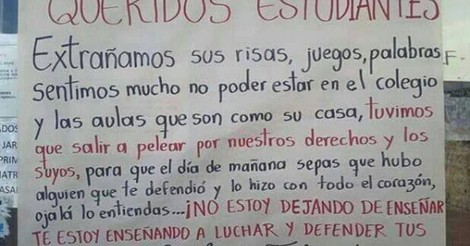 QUERIDOS ESTUDIANTES
Extrañamos sus risas, juegos, palabras
sentimos mucho no poder estar en el colegio
y las aulas que son como su casa, tuvimos
que salir a pelear por nuestros derechos y los
suyos, para que el día de mañana sepas que hubo
alguien que te defendió y lo hizo con todo el corazón,
ojalá lo entiendas...¡NO ESTOY DEJANDO DE ENSEÑAR
TE ESTOY ENSEÑANDO A LUCHAR Y DEFENDER TUS